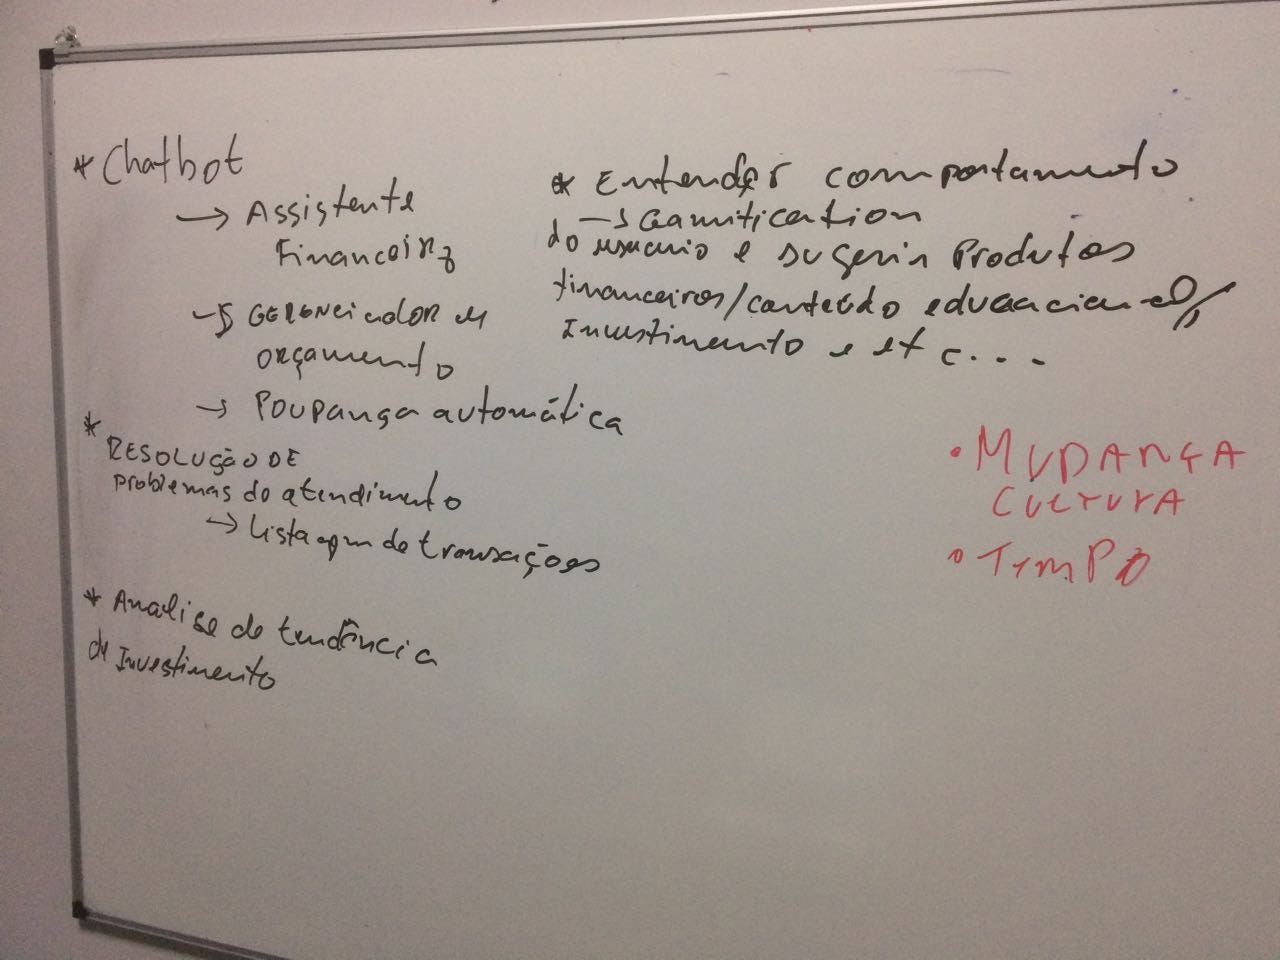 * Chatbot
→ Assistente
Financeiro
→ GERENCIADOR de
orçamento
→ Poupança automática
* RESOLUÇÃO DE
problemas do atendimento
→ Listagem de transações
* Analise de tendência
de Investimento
* Entender comportamento
→ Gamification
do usuário e sugerir Produtos
financeiros/conteúdo educacional/
Investimento e etc...
• MUDANÇA
CULTURA
• TEMPO